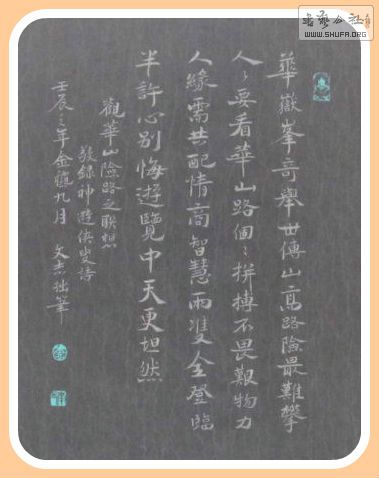 華嶽峯奇舉世傳山高路險最難攀
人々要看華山路個々拼搏不畏艱物力
人緣需共配情商智慧兩雙全登臨
半許心別悔遊覽中天更坦然
觀華山險路之聯想
敬錄神遊俠叟詩
壬辰之年金慎九月 文志拙筆
書藝公社
WWW.SHUFA.ORG